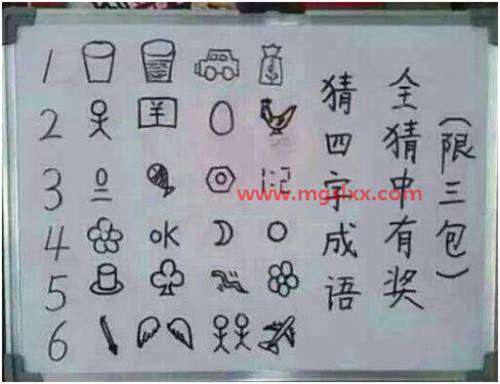 (限三包)
全猜中有奖
猜四字成语
1
2 羊
3 1:2
4 OK
5
6
www.mgzlxx.com